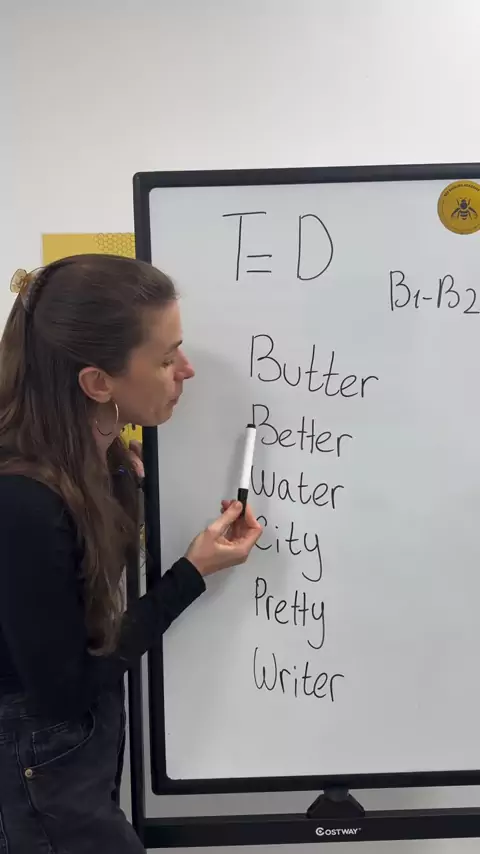 T = D
B1-B2
Butter
Better
Water
City
Pretty
Writer
COSTWAY